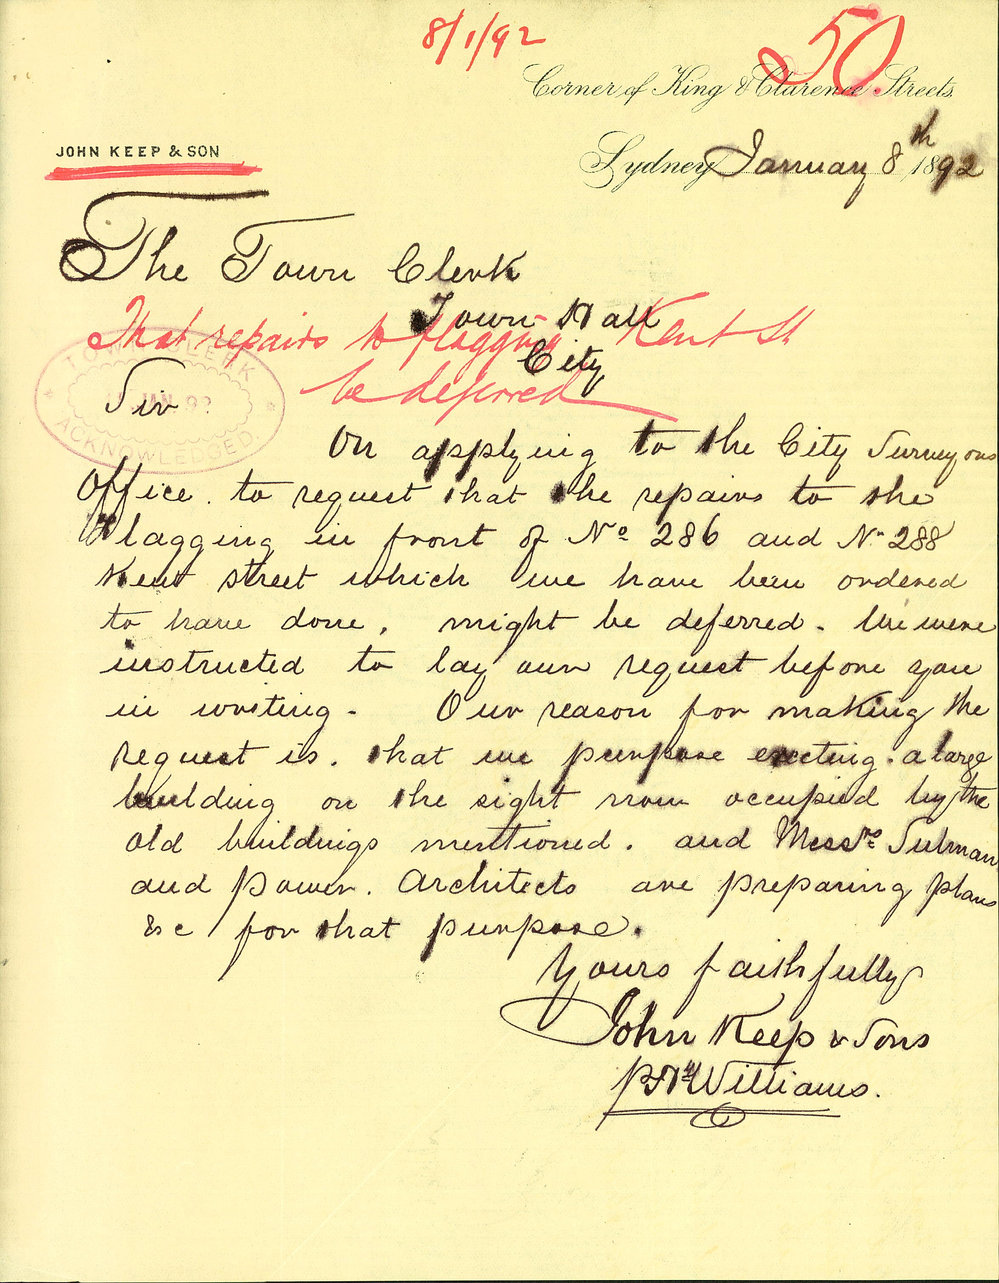 8/1/92
50
Corner of King & Clarence Streets.
JOHN KEEP & SON
Sydney January 8th 1892
The Town Clerk
Town Hall
City
That repairs to flagging Kent St
be deferred
TOWN CLERK
JAN 92
ACKNOWLEDGED.
Sir
On applying to the City Surveyors
Office. to request that the repairs to the
flagging in front of No 286 and No 288
Kent street which we have been ordered
to have done, might be deferred. We were
instructed to lay our request before you
in writing. Our reason for making the
request is. that we purpose erecting. a large
building on the sight now occupied by the
old buildings mentioned. and Messrs Sulman
and Power. Architects are preparing plans
&c for that purpose.
Yours faithfully
John Keep & Sons
Williams.